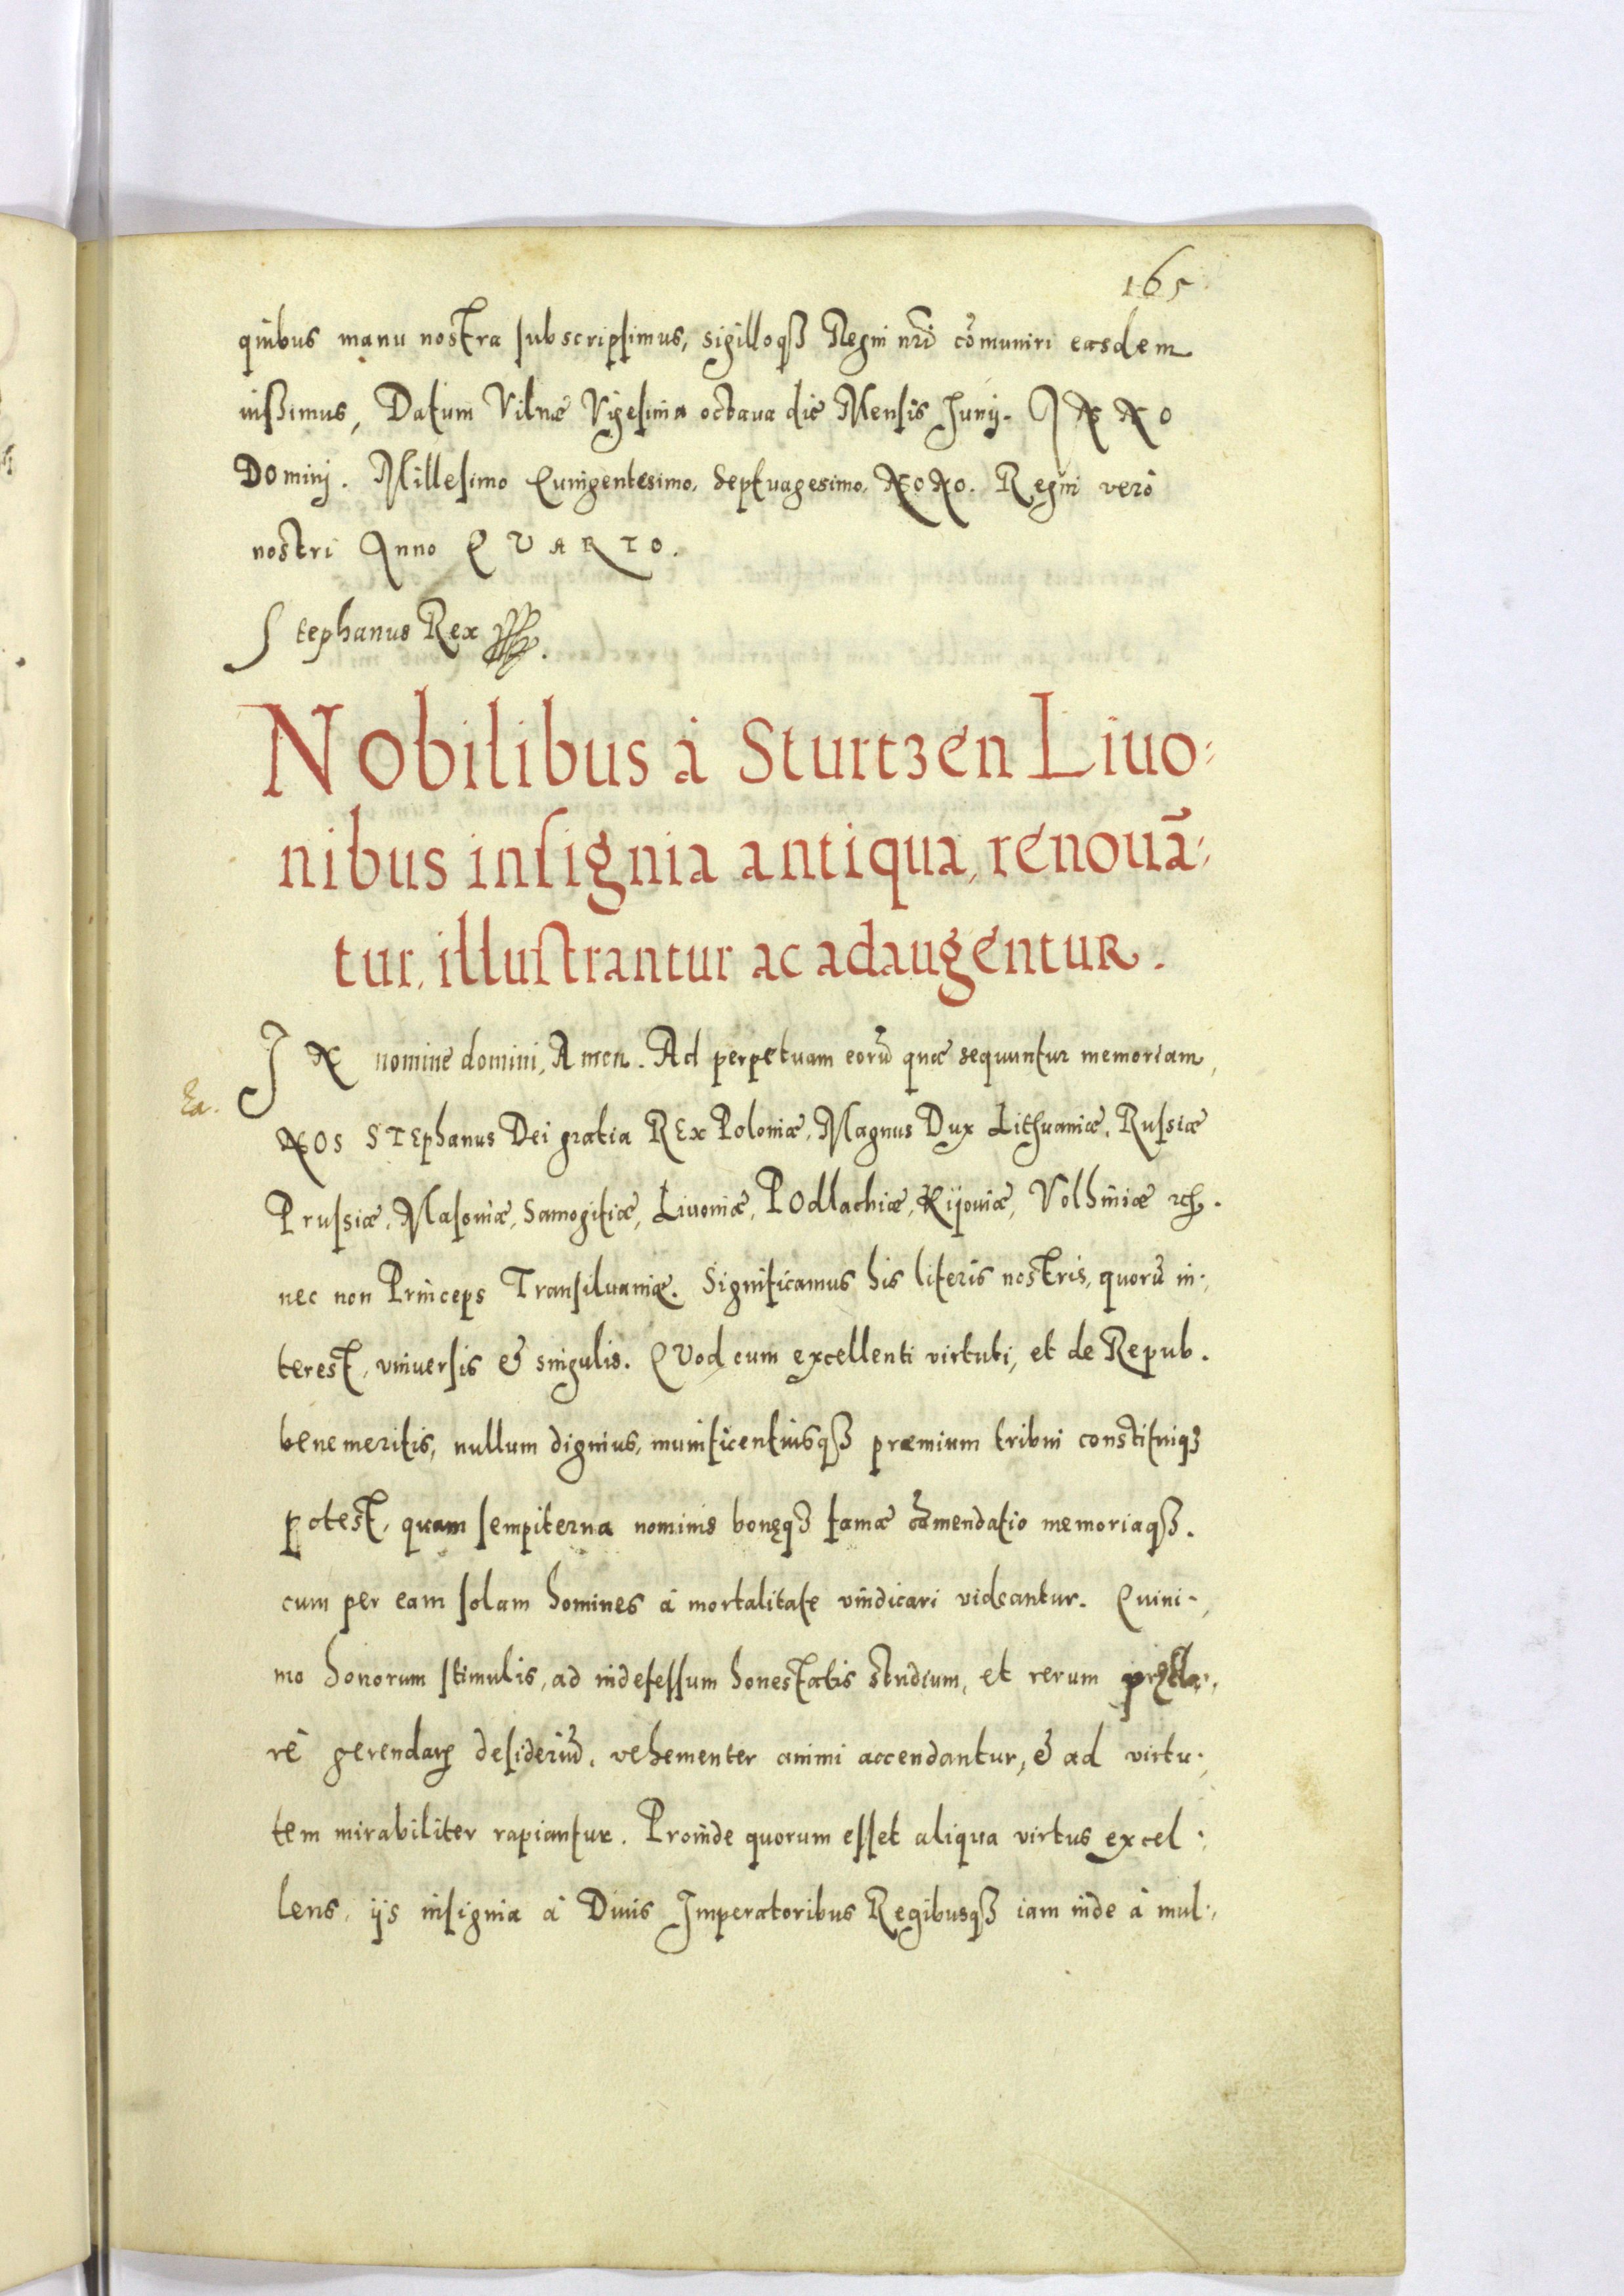 165
quibus manu nostra subscripsimus, sigilloqꝫ Regni nr̃i cõmuniri easdem
iussimus, Datum Vilnæ Vigesima octaua die Mensis Junij. ANNO
Dominj. Millesimo Quingentesimo, Septuagesimo, NoNo. Regni verò
nostri Anno QVARTO.
Stephanus Rex
Nobilibus à Sturtzen Liuo:
nibus insignia antiqua, renouã:
tur, illustrantur ac adaugentur.
IN nomine domini, Amen. Ad perpetuam eorũ quæ sequuntur memoriam,
NOS STEphanus Dei gratia REx Poloniæ, Magnus Dux Lithuaniæ, Russiæ
Prussiæ, Masouiæ, Samogitiæ, Liuoniæ, POdlachiæ, Kijouiæ, Volhiniæ ꝛcꝭ.
nec non Princeps Transiluaniæ. Significamus his literis nostris, quorũ in:
terest, vniuersis & singulis. QVod cum excellenti virtuti, et de Repub.
benemeritis, nullum dignius, munificentiusqꝫ præmium tribui constituiqꝫ
potest, quam sempiterna nominis bonęqꝫ famæ cõmendatio memoriaqꝫ.
cum per eam solam homines à mortalitate vindicari videantur. Quini:
mo honorum stimulis, ad indefessum honestatis studium, et rerum pręcla:
rè gerendaꝝ desideriũ, vehementer animi accendantur, & ad virtu:
tem mirabiliter rapiantur. Proinde quorum esset aliqua virtus excel:
lens, ijs insignia à Diuis Imperatoribus Regibusqꝫ iam inde à mul: